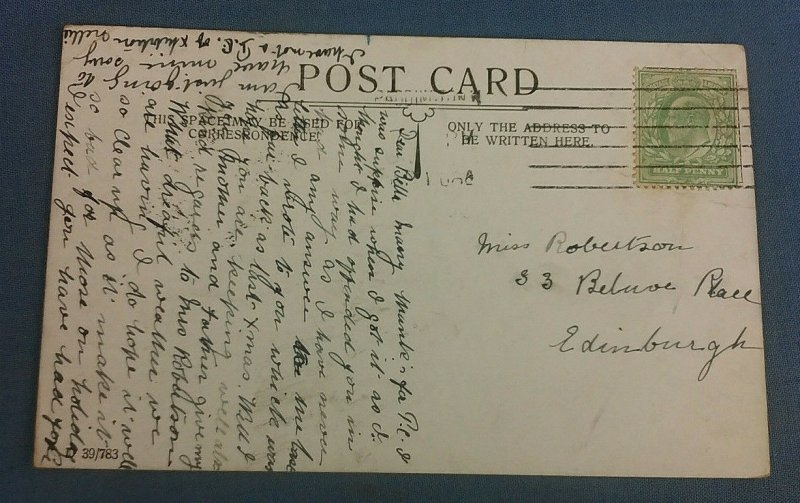 POST CARD
THIS SPACE MAY BE USED FOR
CORRESPONDENCE
ONLY THE ADDRESS TO
BE WRITTEN HERE.
HALF PENNY
Miss Robertson
33 Place
Edinburgh
Dear Bella Many thanks for P.C. I
was surprise when I got it as I
thought I had offended you in
some way as I have never
had any answer to the
letter I wrote to you which was
as back as that Xmas Well I
hope you are keeping well also
Mother and Father give my
kind regards to Mrs Robertson
What dreadful weather we
are having I do hope it will
so clear up as it make it
so bad for those on holiday
I expect you have had yours
am just going to
have mine soon
I have not a P.C. of Exhibition
39/783